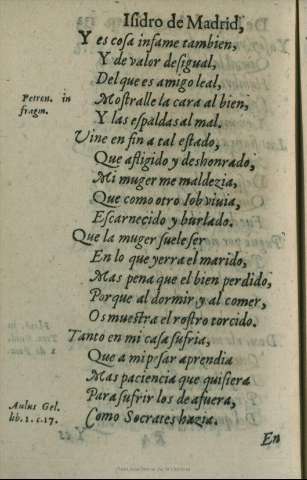 Isidro de Madrid,
Y es cosa infame tambien,
Y de valor desigual,
Del que es amigo leal,
Petron. in
fragm.
Mostralle la cara al bien,
Y las espaldas al mal.
Vine en fin a tal estado,
Que afligido y deshonrado,
Mi muger me maldezia,
Que como otro Iob viuia,
Escarnecido y burlado.
Que la muger suele ser
En lo que yerra el marido,
Mas pena que el bien perdido,
Porque al dormir, y al comer,
Os muestra el rostro torcido.
Tanto en mi casa sufria,
Que a mi pesar aprendia
Mas paciencia que quisiera
Para sufrir los de afuera,
Aulus Gel.
lib. 1. c. 17.
Como Socrates hazia.
En